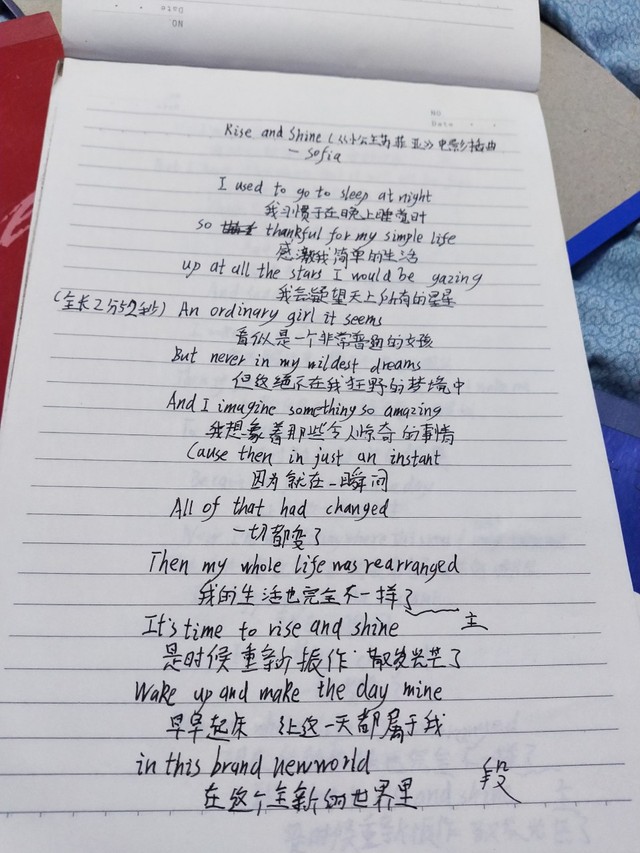 NO
Date
NO
Date
Rise and Shine (《小公主苏菲亚》电影插曲
— Sofia
I used to go to sleep at night
我习惯于在晚上睡觉时
so thankful for my simple life
感激我简单的生活
up at all the stars I would be gazing
我会凝望天上所有的星星
(全长2分52秒) An ordinary girl it seems
看似是一个非常普通的女孩
But never in my wildest dreams
但这绝不在我狂野的梦境中
And I imagine something so amazing
我想象着那些令人惊奇的事情
Cause then in just an instant
因为就在一瞬间
All of that had changed
一切都变了
Then my whole life was rearranged
我的生活也完全不一样了
It's time to rise and shine 主
是时候重新振作 散发光芒了
Wake up and make the day mine
早早起床 让这一天都属于我
in this brand new world
在这个全新的世界里 段